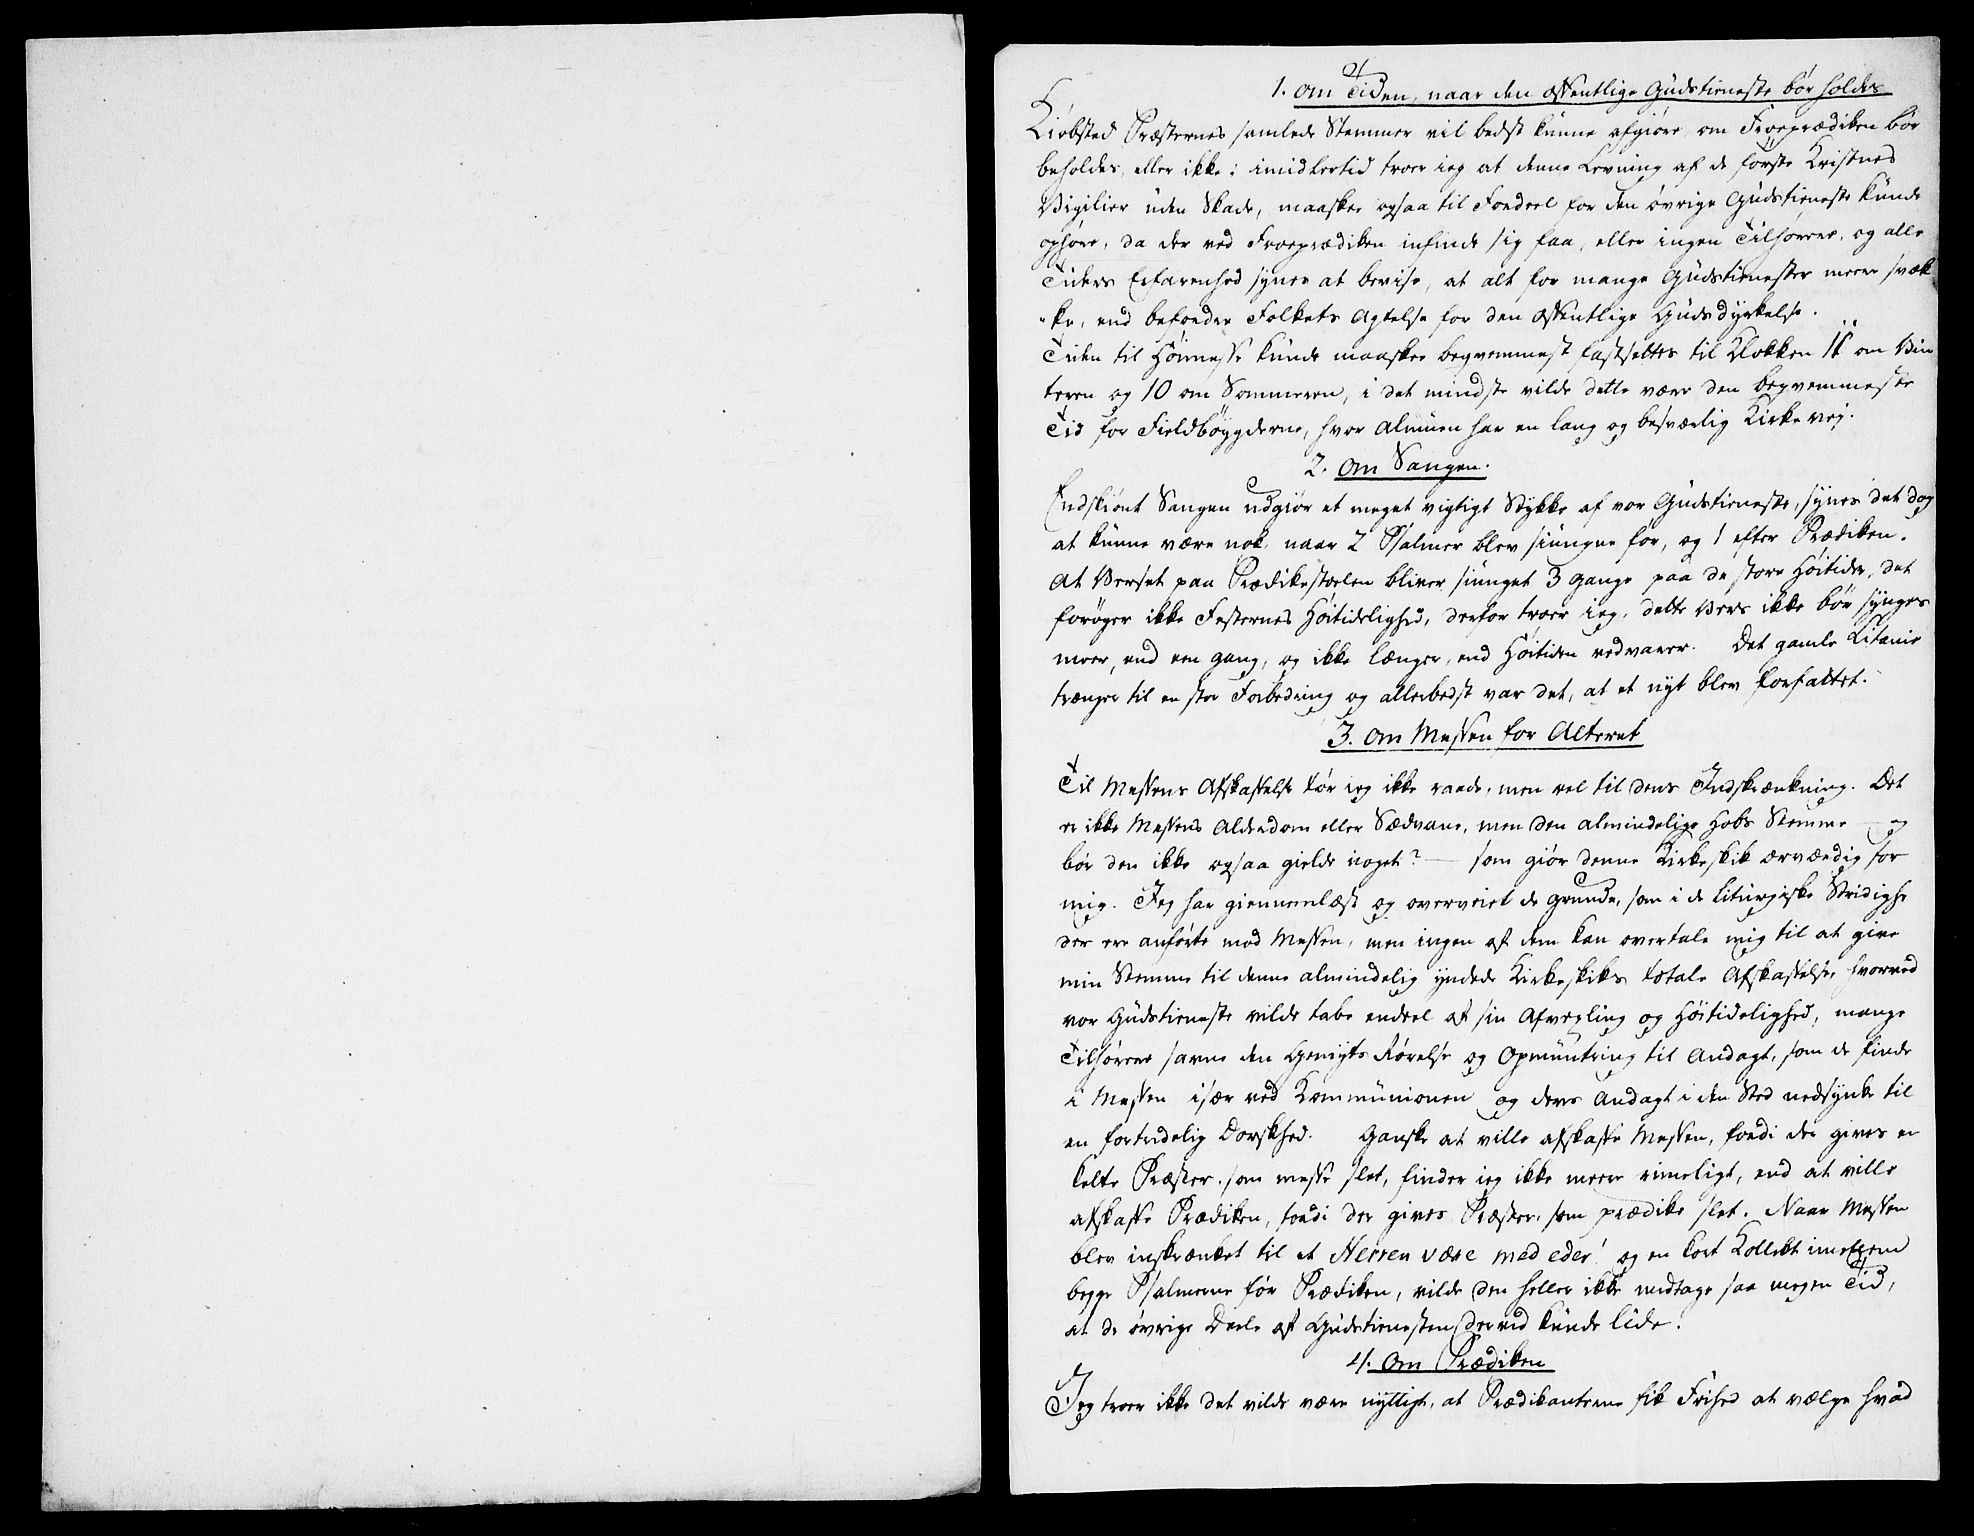 1. Om Tiden, naar den offentlige Gudstieneste bør holdes
Kiøbsted Præsternes samlede Stemmer vil bedst kunne afgiøre om Froeprædiken bør
beholdes, eller ikke: imidlertid troer ieg at denne Levning af de første Kristnes
Vigilier uden Skade, maaskee ogsaa til Fordeel for den øvrige Gudstieneste kunde
ophøre, da der ved Froeprædiken infinde sig faa, eller ingen Tilhørere, og alle
Tiders Erfarenhed synes at bevise, at alt for mange Gudstienester meere svæk
-ke, end befordre Folkets Agtelse for den offentlige Gudsdyrkelse.
Tiden til Høimesse kunde maaskee beqvemmest fastsettes til Klokken 11 om Vin
teren og 10 om Sommeren, i det mindste vilde dette være den beqvemmeste
Tid for Fieldbøygderne, hvor Almuen har en lang og besværlig Kirke vej.
2. Om Sangen.
Endskiønt Sangen udgiør et meget vigtigt Stykke af vor Gudstieneste, synes det dog
at kunne være nok, naar 2 Psalmer blev siungne før, og 1 efter Prædiken.
At Verset paa Prædikestoelen bliver siunget 3 gange paa de store Høitider, det
forøger ikke Festernes Høitidelighed, derfor troer ieg, dette Vers ikke bør synges
meer, end een gang, og ikke længer, end Høitiden vedvarer. Det gamle Litanie
trænger til en stor Forbedring og allerbedst var det, at et nyt blev forfattet.
3. Om Messen for Alteret
Til Messens Afskaffelse tør ieg ikke raade, men vel til dens Indskrænkning. Det
er ikke Messens Alderdom eller Sædvane, men den almindelige Hobs Stemme — og
bør den ikke ogsaa gielde noget? — som giør denne Kirkeskik ærværdig for
mig. Jeg har giennemlæst og overveiet de grunde, som i de liturgiske Stridighe
der ere anførte mod Messen, men ingen af dem kan overtale mig til at give
min Stemme til denne almindelig yndede Kirkeskiks totale Afskaffelse, hvorved
vor Gudstieneste vilde tabe endeel af sin Afvexling og Høitidelighed, mange
Tilhørere savne den Gemyts Rørelse og Opmuntring til Andagt, som de finde
i Messen især ved Kommunionen og deres Andagt i den Sted nedsynke til
en fortredelig Dorskhed. Ganske at ville afskaffe Messen, fordi der gives en
kelte Præster, som messe slet, finder ieg ikke meere rimeligt, end at ville
afskaffe Prædiken, fordi der gives Præster, som prædike slet. Naar Messen
blev inskrænket til et Herren være med eder! og en kort Kollekt imellem
begge Psalmerne før Prædiken, vilde den heller ikke medtage saa megen Tid,
at de øvrige Deele af Gudstienesten derved kunde lide.
4. Om Prædiken
Jeg troer ikke det vilde være nyttigt, at Prædikanterne fik Frihed at vælge hvad